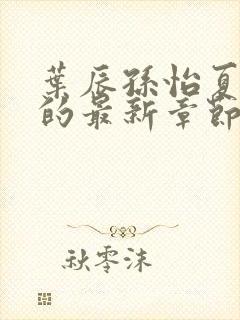 葉辰孫怡夏
的最新章節
秋零沫